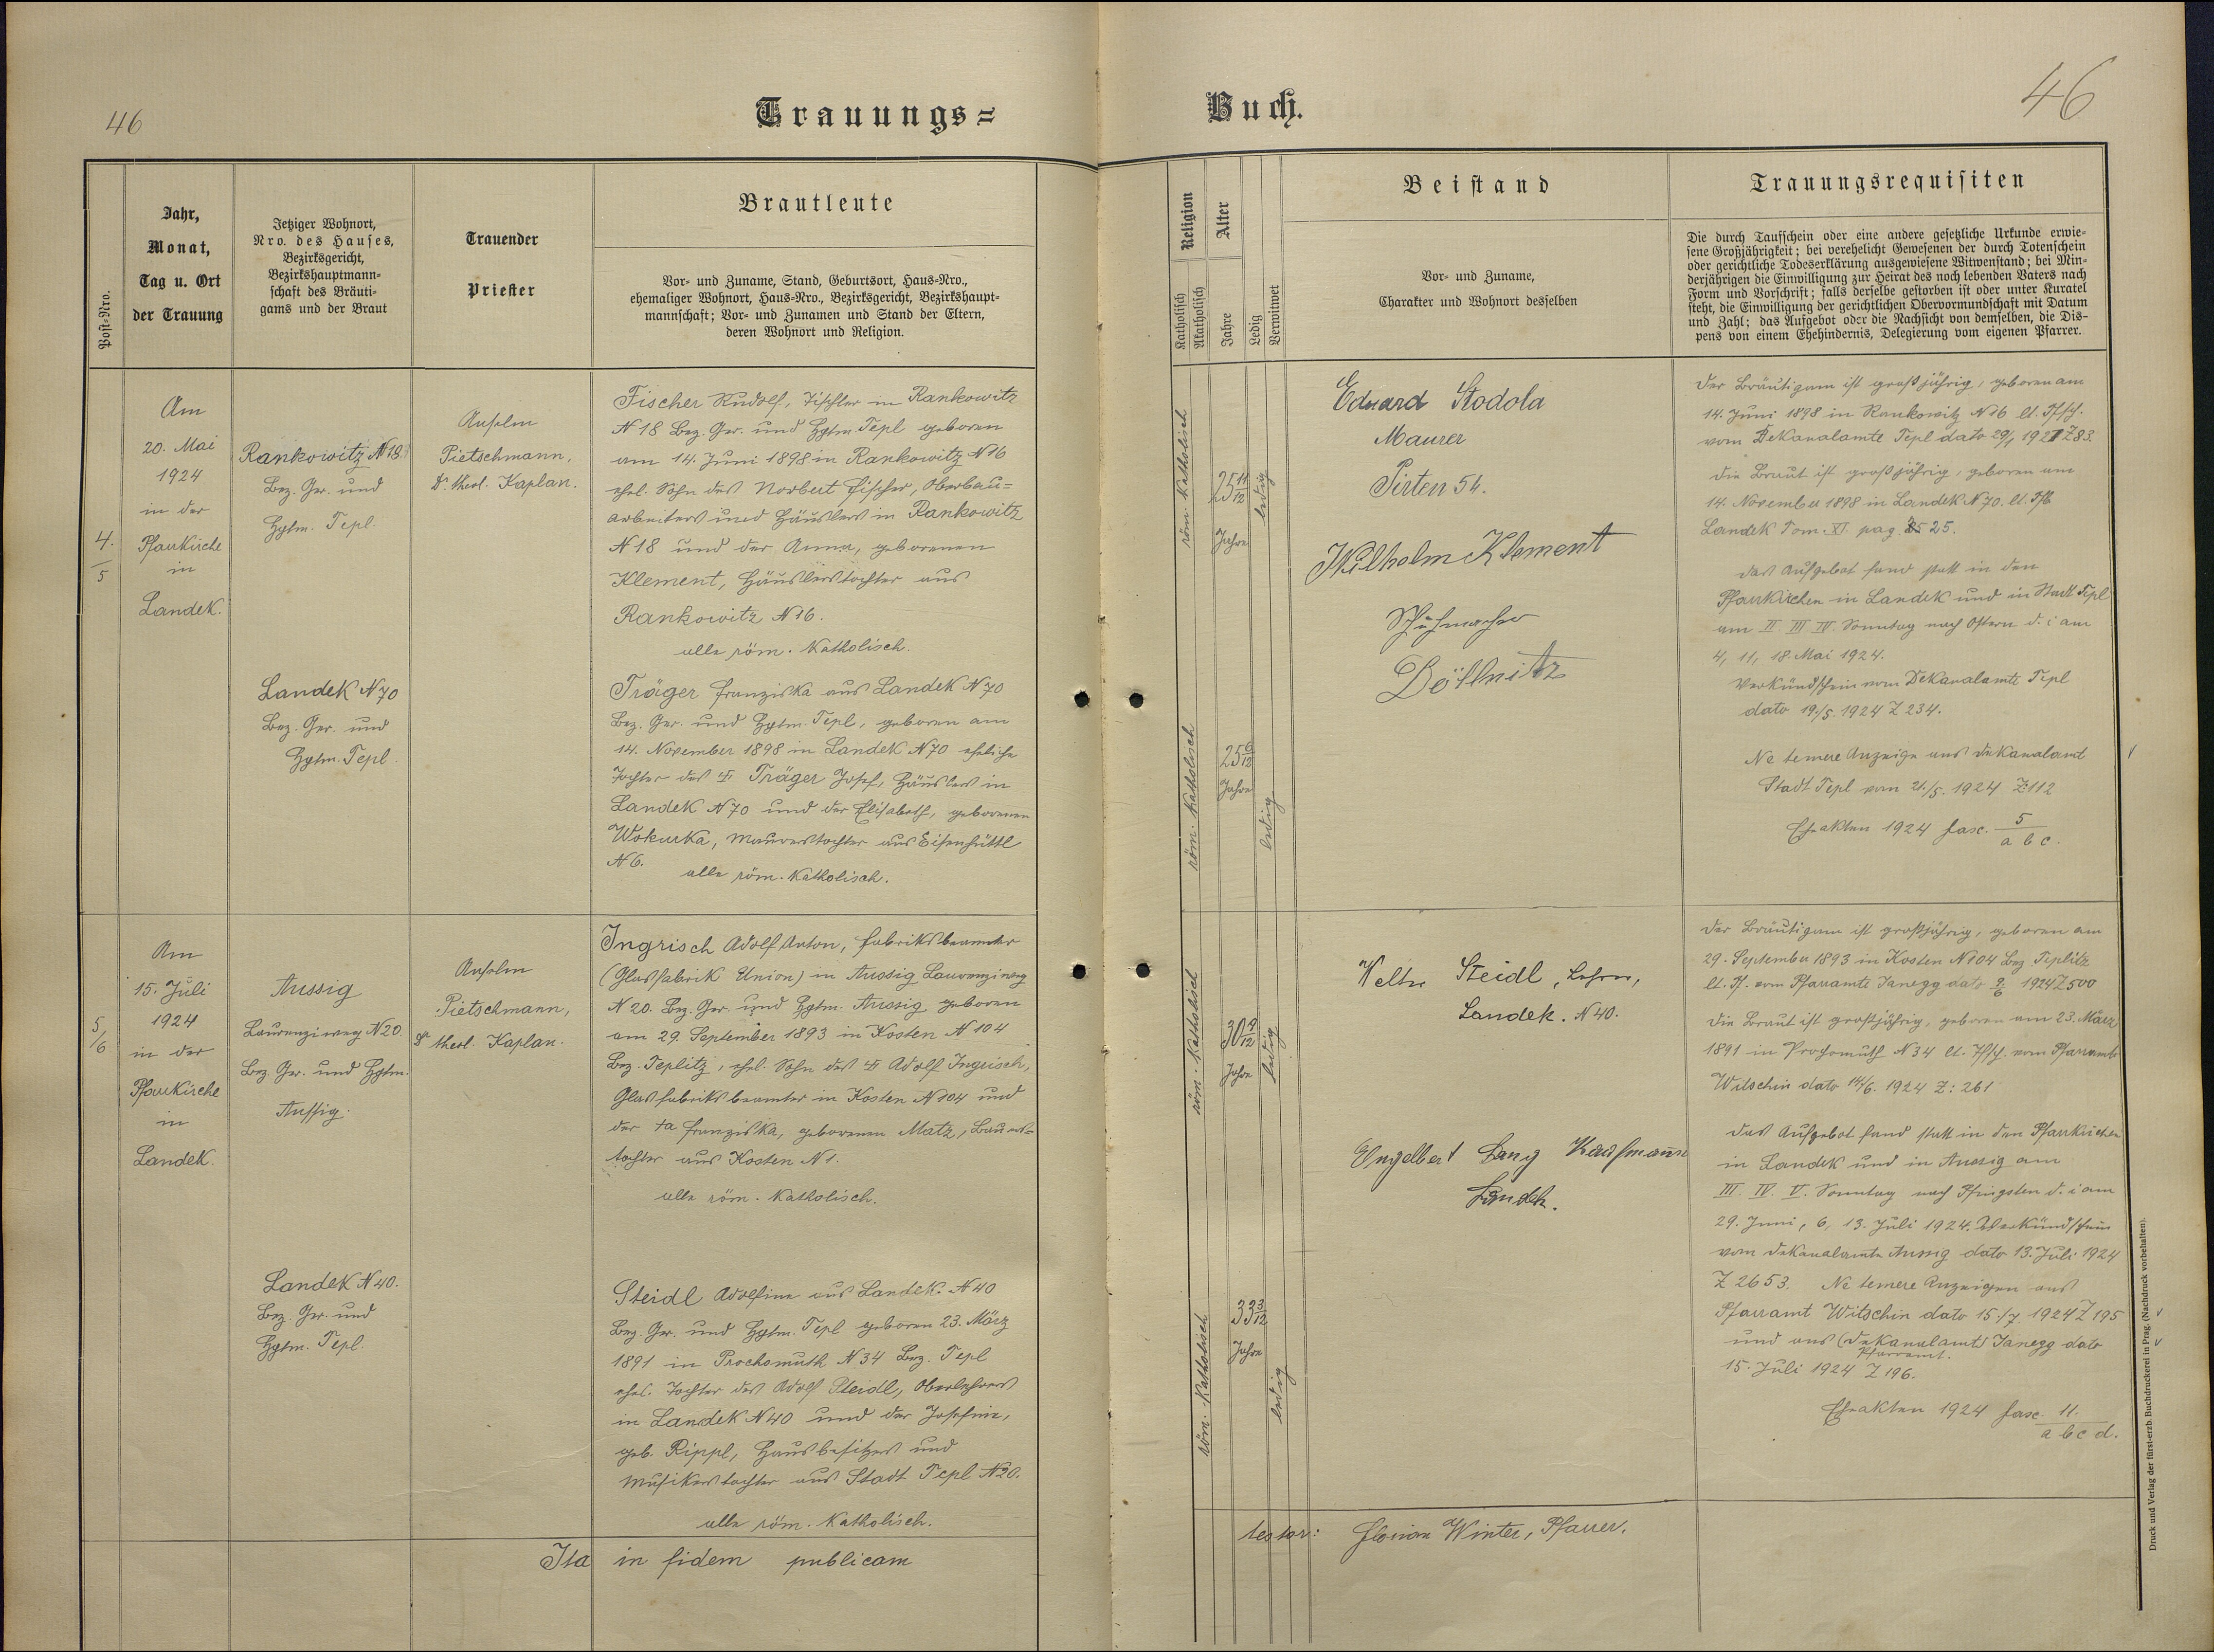 46
Trauungs=
Buch.
46
Post=Nro.
Jahr,
Monat,
Tag u. Ort
der Trauung
Jetziger Wohnort,
Nro. des Hauses,
Bezirksgericht,
Bezirkshauptmann-
schaft des Bräuti-
gams und der Braut
Trauender
Priester
Brautleute
Vor- und Zuname, Stand, Geburtsort, Haus=Nro.,
ehemaliger Wohnort, Haus=Nro., Bezirksgericht, Bezirkshaupt-
mannschaft; Vor- und Zunamen und Stand der Eltern,
deren Wohnort und Religion.
Religion
Katholisch
Akatholisch
Alter
Jahre
Ledig
Verwitwet
Beistand
Vor- und Zuname,
Charakter und Wohnort desselben
Trauungsrequisiten
Die durch Taufschein oder eine andere gesetzliche Urkunde erwie-
sene Großjährigkeit; bei verehelicht Gewesenen der durch Totenschein
oder gerichtliche Todeserklärung ausgewiesene Witwenstand; bei Min-
derjährigen die Einwilligung zur Heirat des noch lebenden Vaters nach
Form und Vorschrift; falls derselbe gestorben ist oder unter Kuratel
steht, die Einwilligung der gerichtlichen Obervormundschaft mit Datum
und Zahl; das Aufgebot oder die Nachsicht von demselben, die Dis-
pens von einem Ehehindernis, Delegierung vom eigenen Pfarrer.
4.
5
Am
20. Mai
1924
in der
Pfarrkirche
in
Landek.
Rankowitz N 18
Bez. Ger. und
Hptm. Tepl.
Anselm
Pietschmann,
Dr. theol. Kaplan.
Fischer Rudolf, Tischler in Rankowitz
N 18 Bez. Ger. und Hptm. Tepl geboren
am 14. Juni 1898 in Rankowitz N 16
ehel. Sohn des Norbert Fischer, Oberbau=
arbeiters und Häuslers in Rankowitz
N 18 und der Anna, geborenen
Klement, Häuslerstochter aus
Rankowitz N 16.
alle röm. Katholisch.
röm. Katholisch
25 11/12
Jahre
ledig
Eduard Stodola
Maurer
Pirten 54.
Wilhelm Klement
Schuhmacher
Döllnitz
Der Bräutigam ist großjährig, geboren am
14. Juni 1898 in Rankowitz N 16 lt. Tfsch.
vom Dekanalamte Tepl dato 29/1 1921 Z 83.
Die Braut ist großjährig, geboren am
14. November 1898 in Landek N 70. lt. Tfb.
Landek Tom. XI. pag. 25.
Das Aufgebot fand statt in den
Pfarrkirchen in Landek und in Stadt Tepl
am II. III. IV. Sonntag nach Ostern d. i am
4, 11, 18. Mai 1924.
Verkündschein vom Dekanalamte Tepl
dato 19./5. 1924 Z 234.
Ne temere Anzeige ans Dekanalamt
Stadt Tepl vom 21./5. 1924 Z 112
Eheakten 1924 fasc. 5
a b c.
Landek N 70
Bez. Ger. und
Hptm. Tepl.
Träger Franziska aus Landek N 70
Bez. Ger. und Hptm. Tepl, geboren am
14. November 1898 in Landek N 70 eheliche
Tochter des † Träger Josef, Häuslers in
Landek N 70 und der Elisabeth, geborenen
Wokurka, Maurerstochter aus Eisenhüttl
N 6.
alle röm. Katholisch.
röm. Katholisch
25 6/12
Jahre
ledig
5/6
Am
15. Juli
1924
in der
Pfarrkirche
in
Landek.
Aussig
Laurenziweg N 20.
Bez. Ger. und Hptm.
Aussig.
Anselm
Pietschmann,
Dr theol. Kaplan.
Ingrisch Adolf Anton, Fabriksbeamter
(Glasfabrik Union) in Aussig Laurenziweg
N 20. Bez. Ger. und Hptm. Aussig geboren
am 29. September 1893 in Kosten N 104
Bez. Teplitz, ehel. Sohn des † Adolf Ingrisch,
Glasfabriksbeamter in Kosten N 104 und
der †a Franziska, geborenen Matz, Bauers=
tochter aus Kosten N 1.
alle röm. Katholisch.
röm. Katholisch
30 /12
Jahre
ledig
Steidl, Lehrer,
Landek. N 40.
Engelbert Lang Kaufmann
Landek.
Der Bräutigam ist großjährig, geboren am
29. September 1893 in Kosten N 104 Bez Teplitz
lt. Tf. vom Pfarramte Janegg dato 1924 Z 500
Die Braut ist großjährig, geboren am 23. März
1891 in Prochomuth N 34 lt. Tfsch. vom Pfarramte
Witschin dato 14/6. 1924 Z: 261
Das Aufgebot fand statt in den Pfarrkirchen
in Landek und in Aussig am
III. IV. V. Sonntag nach Pfingsten d. i am
29. Juni, 6, 13. Juli 1924. Verkündschein
vom Dekanalamte Aussig dato 13. Juli 1924
Z 2653. Ne temere Anzeigen ans
Pfarramt Witschin dato 15./7 1924 Z 195
und ans (Dekanalamt) Janegg dato
Pfarramt.
15. Juli 1924 Z 196.
Eheakten 1924 fasc. 11.
a b c d.
Landek N 40.
Bez. Ger. und
Hptm. Tepl.
Steidl Adolfine aus Landek. N 40
Bez. Ger. und Hptm. Tepl geboren 23. März
1891 in Prochomuth N 34 Bez. Tepl
ehel. Tochter des Adolf Steidl, Oberlehrers
in Landek N 40 und der Josefine,
geb. Rippl, Hausbesitzers und
Musikerstochter aus Stadt Tepl N 20.
alle röm. Katholisch.
röm. Katholisch
33 3/12
Jahre
ledig
Ita in fidem publicam
testor: Florian Winter, Pfarrer.
Druck und Verlag der fürst-erzb. Buchdruckerei in Prag. (Nachdruck vorbehalten).